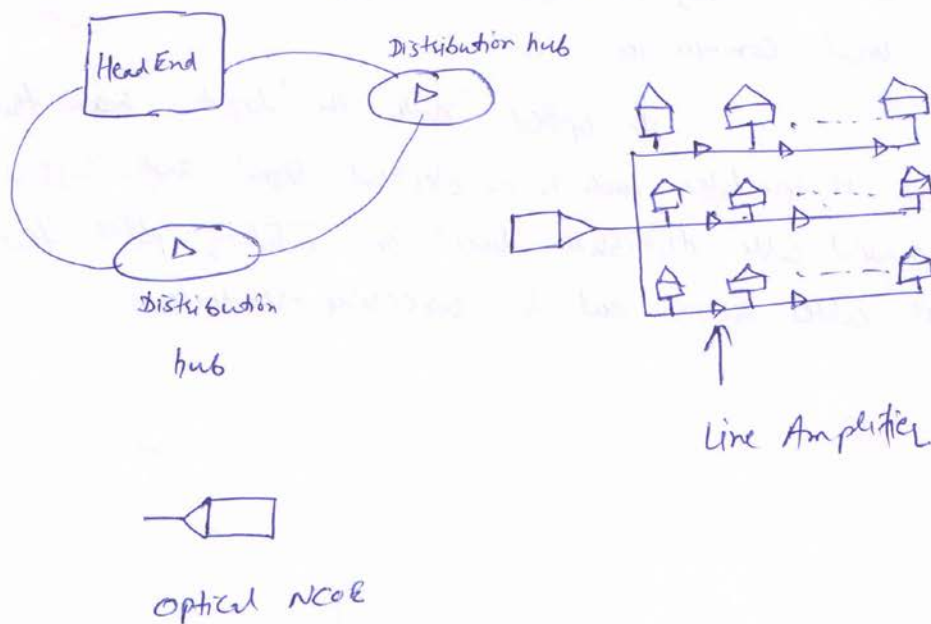 Head End
Distribution hub
Distribution
hub
Line Amplifier
Optical